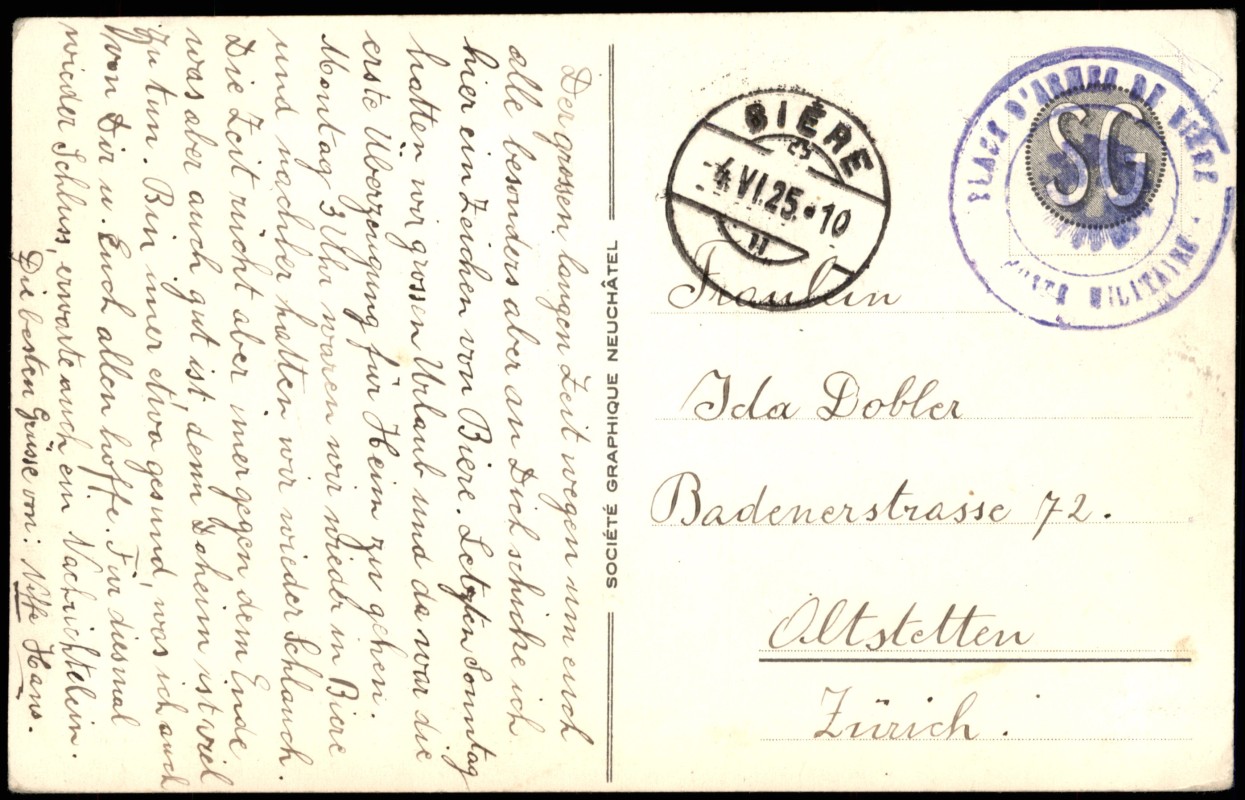 Der grossen, langen Zeit wegen um euch
alle besonders aber an Dich schicke ich
hier ein Zeichen von Biere. Letzten Sonntag
hatten wir grossen Urlaub und da war die
erste Überzeugung für Heim zu gehen.
Montag 3 Uhr waren wir wiedr in Biere
und nachher hatten wir wieder Schlauch.
Die Zeit rückt aber imer gegen dem Ende
was aber auch gut ist, denn Daheim ist viel
zu tun. Bin imer etwa gesund, was ich auch
von Dir u. Euch allen hoffe. Für diesmal
wieder Schluss, erwarte auch ein Nachrichtelein.
Die besten Grüsse von: Hans.
SOCIÉTÉ GRAPHIQUE NEUCHÂTEL
BIÈRE
4 VI.25.10
PLACE D'ARMES DE BIÈRE
SG
POSTE MILITAIRE
Fräulein
Ida Dobler
Badenerstrasse 72.
Altstetten
Zürich.